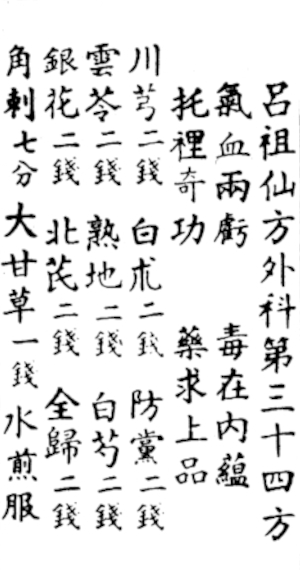 呂祖仙方外科第三十四方
氣血兩虧 毒在內蘊
托裡奇功 藥求上品
川芎二錢 白朮二錢 防黨二錢
雲苓二錢 熟地二錢 白芍二錢
銀花二錢 北芪二錢 全歸二錢
角刺七分 大甘草一錢 水煎服